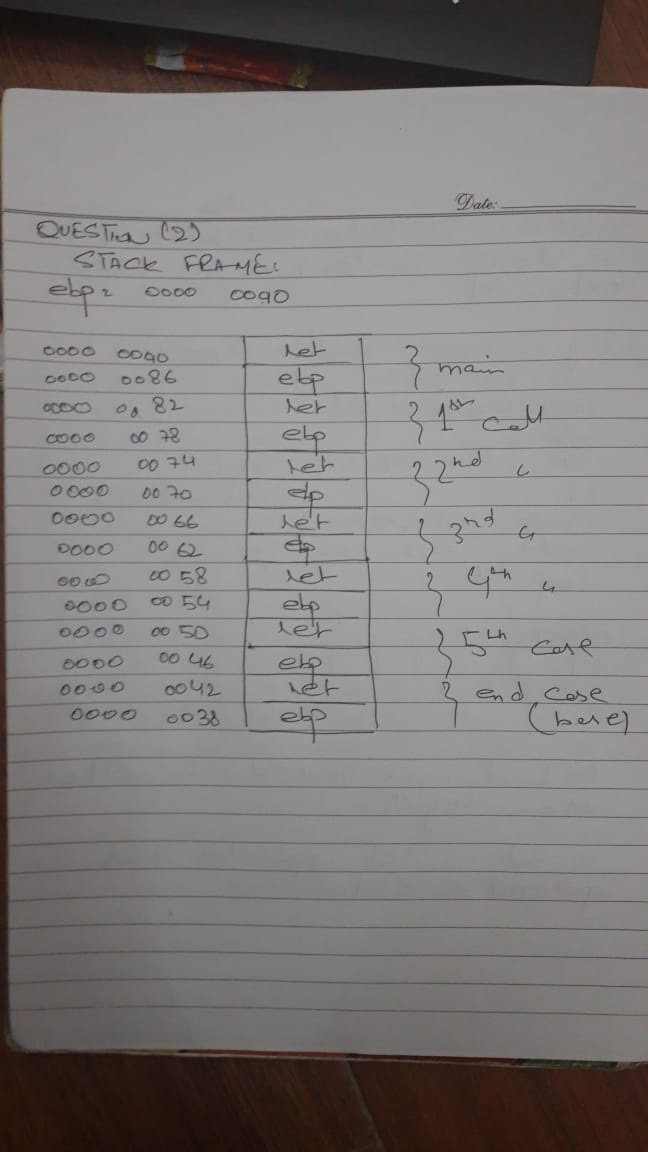 Date:
QUESTION (2)
STACK FRAME:
ebp = 0000 0090
0000 0090 ret } main
0000 0086 ebp
0000 0082 ret } 1st Call
0000 0078 ebp
0000 0074 ret } 2nd "
0000 0070 ebp
0000 0066 ret } 3rd "
0000 0062 ebp
0000 0058 ret } 4th "
0000 0054 ebp
0000 0050 ret } 5th case
0000 0046 ebp
0000 0042 ret } end case
0000 0038 ebp (base)